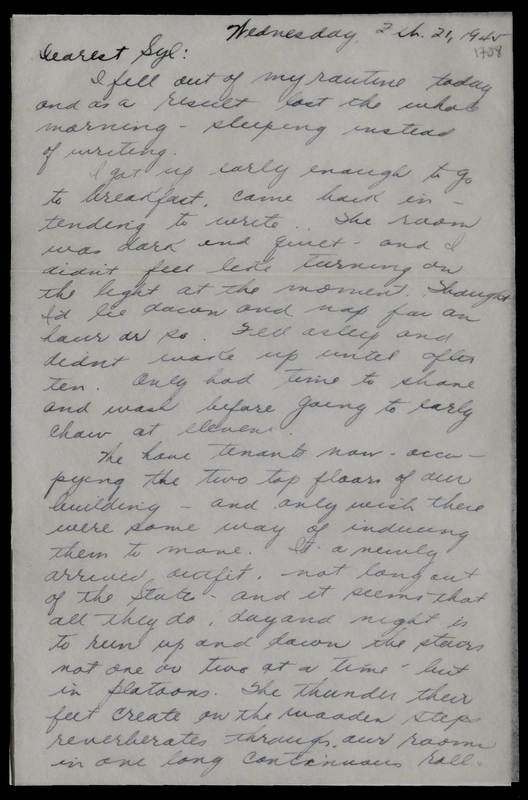 Wednesday, Feb. 21, 1945
1708
Dearest Syl:
I fell out of my routine today
and as a result lost the whole
morning - sleeping instead
of writing.
I got up early enough to go
to breakfast, came back in-
tending to write.. The room
was dark and quiet - and I
didn't feel like turning on
the light at the moment. Thought
I'd lie down and nap for an
hour or so. Fell asleep and
didnt wake up until after
ten. Only had time to shave
and wash before going to early
chow at eleven.
We have tenants now - occu-
pying the two top floors of our
building - and only wish there
were some way of inducing
them to move. It a newly
arrived outfit, not long out
of the States - and it seems that
all they do, day and night is
to run up and down the stairs
not one or two at a time - but
in platoons. The thunder their
feet create on the wooden steps
reverberates through our rooms
in one long continuous roll.